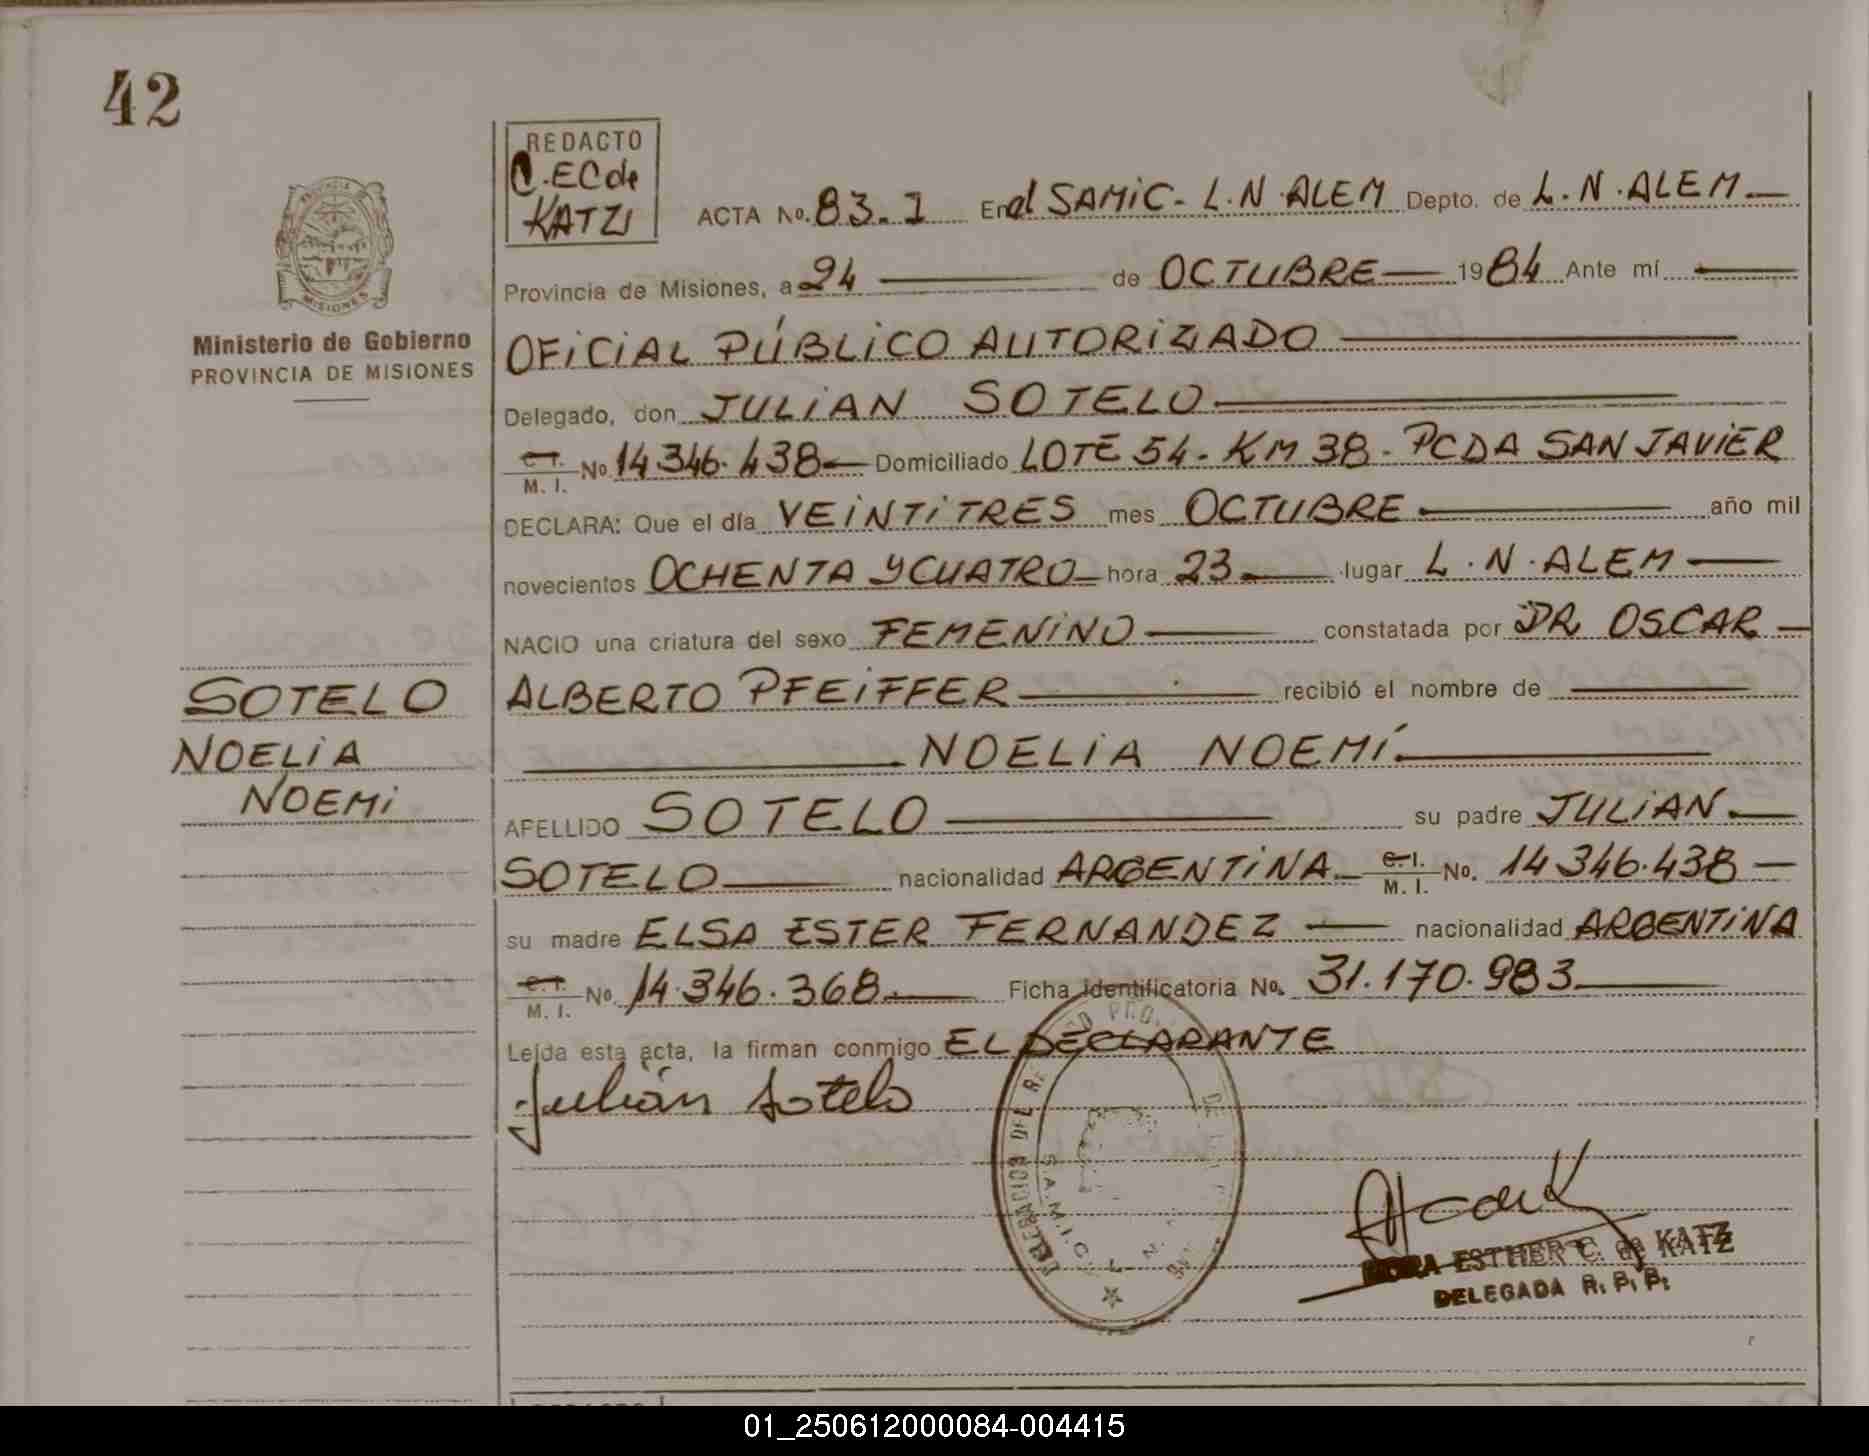 42
REDACTO
C.EC de
KATZ
ACTA No. 83.I En el SAMiC - L.N.ALEM Depto. de L.N.ALEM
Provincia de Misiones, a 24 de OCTUBRE 1984 Ante mí
Ministerio de Gobierno
PROVINCIA DE MISIONES
OFiCiAL PÚBLiCO AUTORiZADO
Delegado, don JULiAN SOTELO
C.I. M. I. No. 14.346.438 Domiciliado LOTE 54 - KM 38 - PCDA SAN JAViER
DECLARA: Que el día VEiNTiTRES mes OCTUBRE año mil
novecientos OCHENTA Y CUATRO hora 23 lugar L.N.ALEM
NACIO una criatura del sexo FEMENiNO constatada por DR OSCAR
ALBERTO PFEiFFER recibió el nombre de
NOELiA NOEMÍ
SOTELO
NOELiA
NOEMi
APELLIDO SOTELO su padre JULiAN
SOTELO nacionalidad ARGENTiNA C.I. M. I. No. 14.346.438
su madre ELSA ESTER FERNANDEZ nacionalidad ARGENTiNA
C.I. M. I. No. 14.346.368 Ficha identificatoria No. 31.170.983
Leída esta acta, la firman conmigo EL DECLARANTE
Julián Sotelo
DEL
S.A.M.I.C.
ESTHER C. de KATZ
DELEGADA R. P. P.
01_250612000084-004415